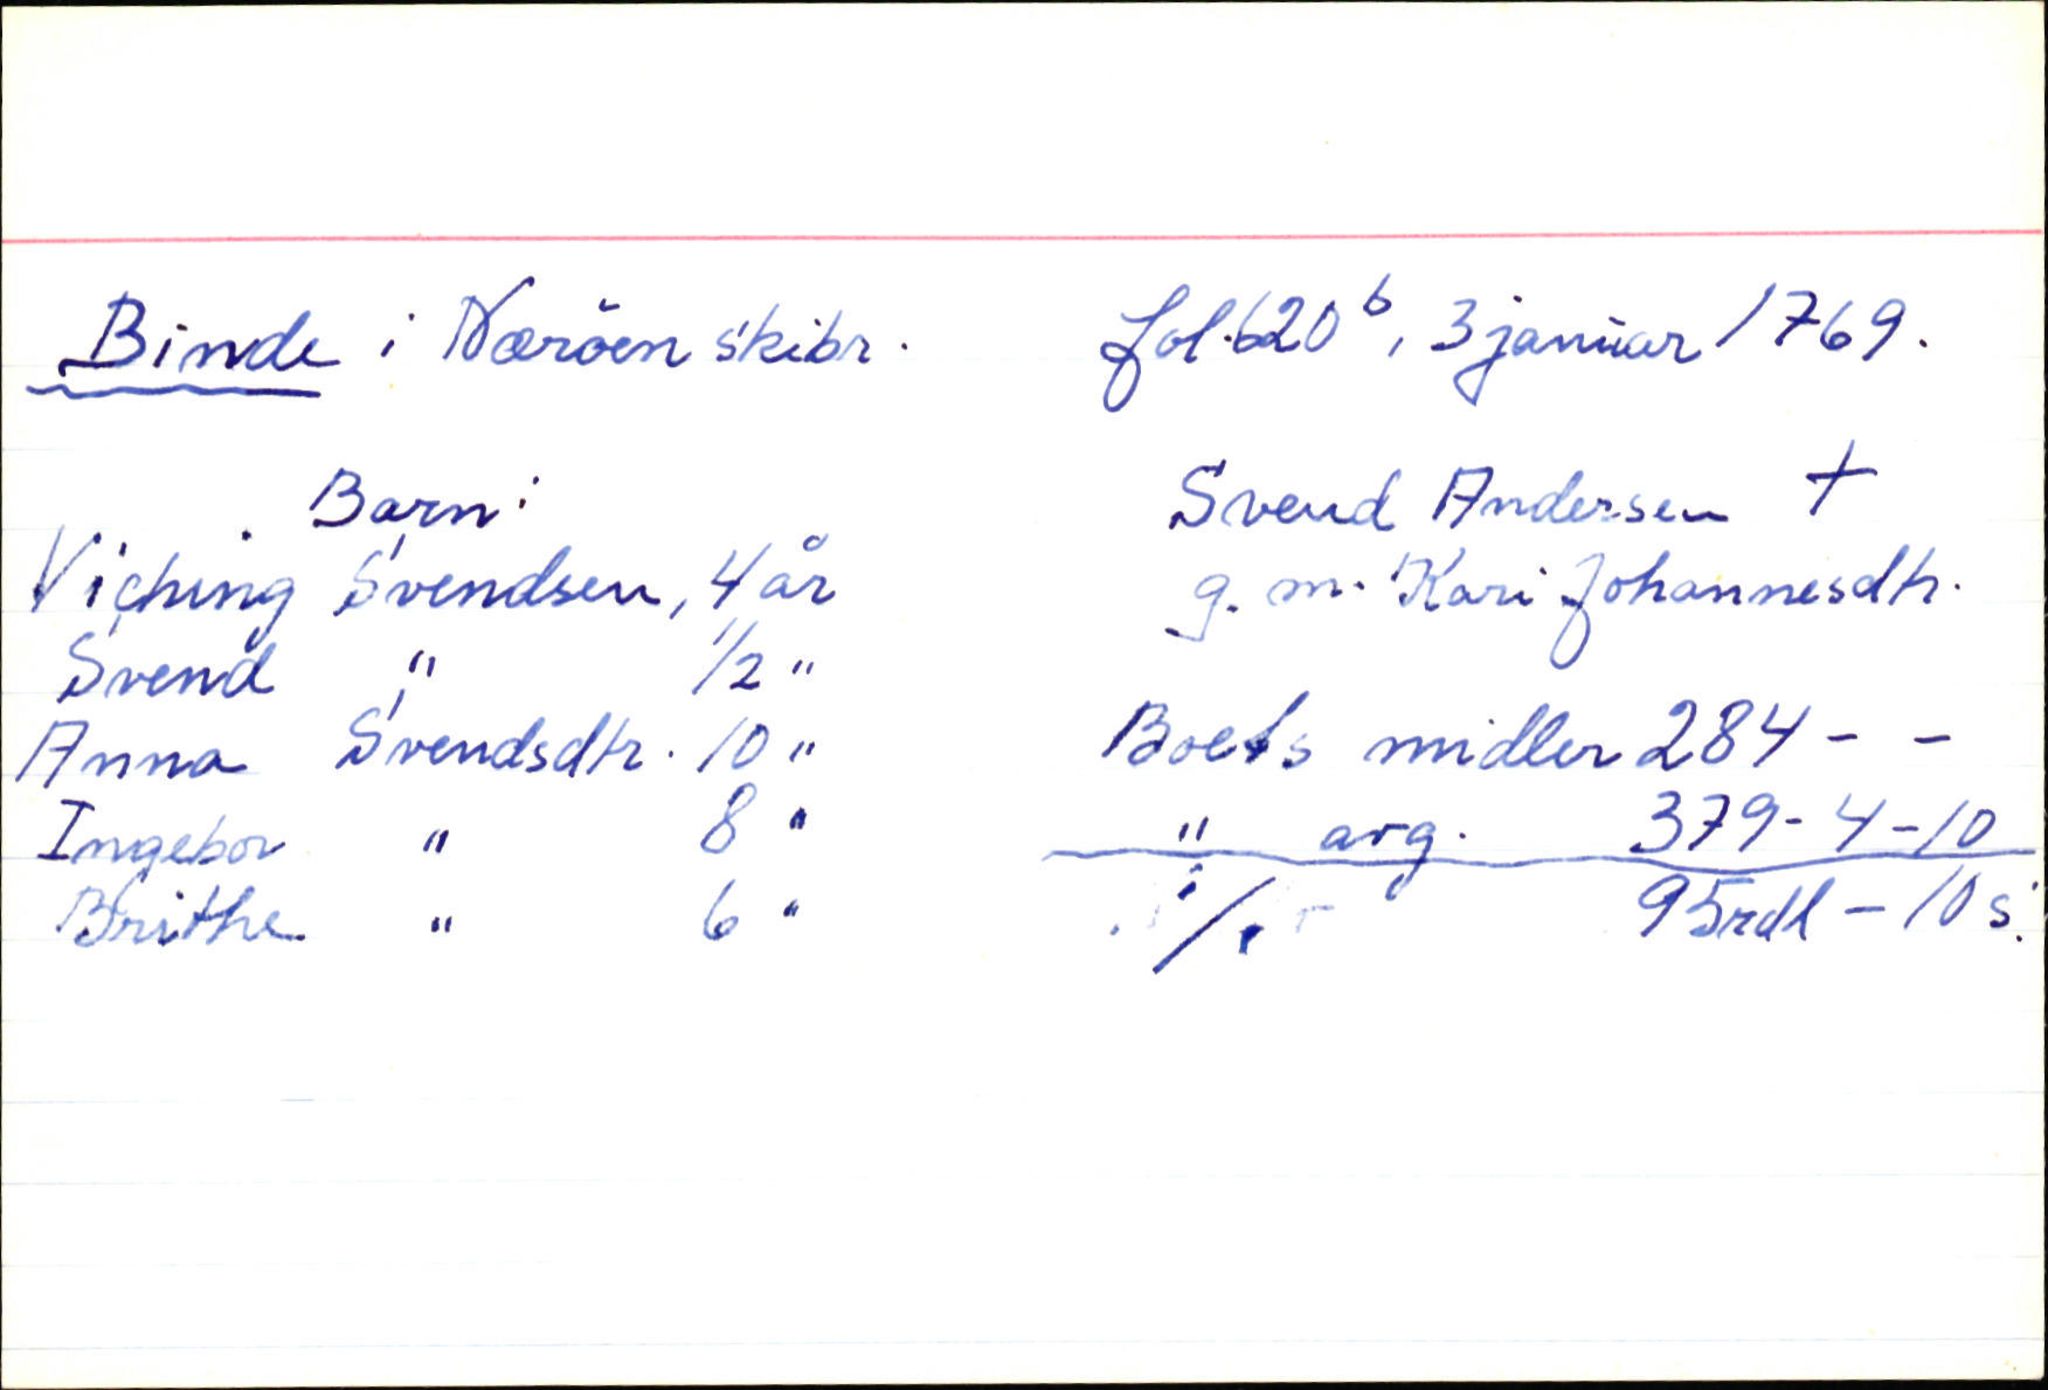 Binde i Næröen skibr. fol. 620ᵇ, 3 januar 1769.
Barn: Svend Andersen †
Viching Svendsen, 4 år g. m. Kari Johannesdtr.
Svend " 1/2 "
Anna Svendsdtr. 10 " Boets midler 284 - -
Ingebor " 8 " " arg. 379 - 4 - 10
Brithe " 6 " 95 rdl - 10 s.